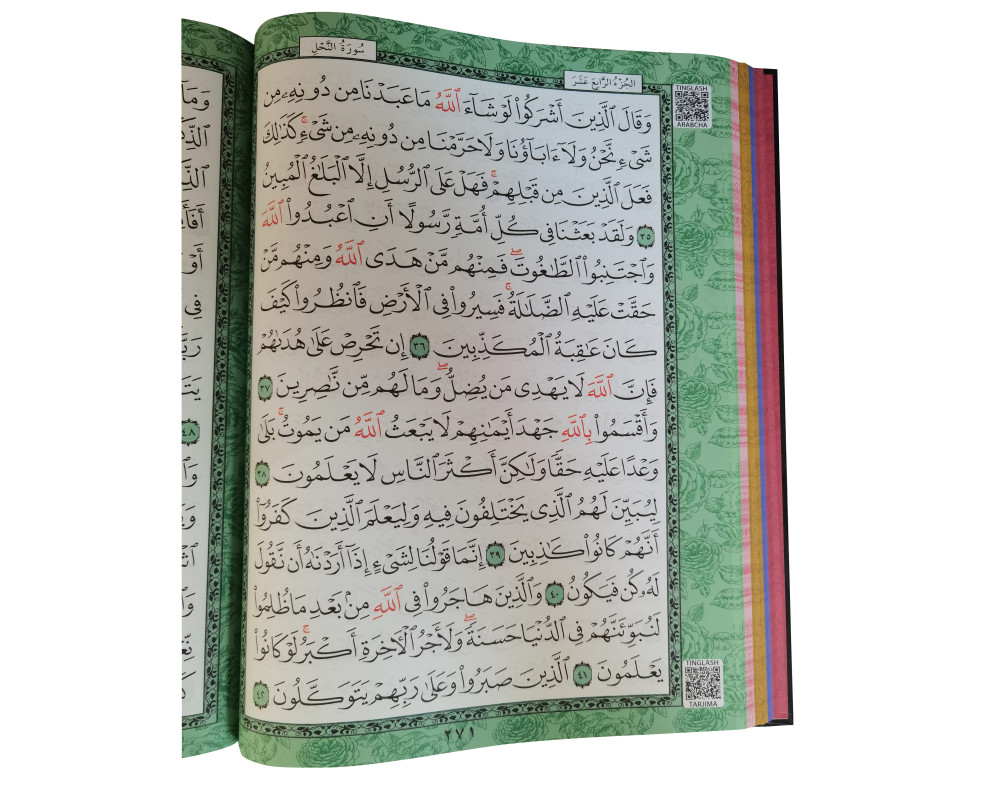 سُورَةُ النَّحْلِ
الجُزْءُ الرَّابِعَ عَشَرَ
TINGLASH
ARABCHA
وَقَالَ ٱلَّذِينَ أَشْرَكُوا۟ لَوْ شَآءَ ٱللَّهُ مَا عَبَدْنَا مِن دُونِهِۦ مِن
شَىْءٍ نَّحْنُ وَلَآ ءَابَآؤُنَا وَلَا حَرَّمْنَا مِن دُونِهِۦ مِن شَىْءٍ ۚ كَذَٰلِكَ
فَعَلَ ٱلَّذِينَ مِن قَبْلِهِمْ ۚ فَهَلْ عَلَى ٱلرُّسُلِ إِلَّا ٱلْبَلَٰغُ ٱلْمُبِينُ
٣٥ وَلَقَدْ بَعَثْنَا فِى كُلِّ أُمَّةٍ رَّسُولًا أَنِ ٱعْبُدُوا۟ ٱللَّهَ
وَٱجْتَنِبُوا۟ ٱلطَّٰغُوتَ ۖ فَمِنْهُم مَّنْ هَدَى ٱللَّهُ وَمِنْهُم مَّنْ
حَقَّتْ عَلَيْهِ ٱلضَّلَٰلَةُ ۚ فَسِيرُوا۟ فِى ٱلْأَرْضِ فَٱنظُرُوا۟ كَيْفَ
كَانَ عَٰقِبَةُ ٱلْمُكَذِّبِينَ ٣٦ إِن تَحْرِصْ عَلَىٰ هُدَىٰهُمْ
فَإِنَّ ٱللَّهَ لَا يَهْدِى مَن يُضِلُّ ۖ وَمَا لَهُم مِّن نَّٰصِرِينَ ٣٧
وَأَقْسَمُوا۟ بِٱللَّهِ جَهْدَ أَيْمَٰنِهِمْ لَا يَبْعَثُ ٱللَّهُ مَن يَمُوتُ ۚ بَلَىٰ
وَعْدًا عَلَيْهِ حَقًّا وَلَٰكِنَّ أَكْثَرَ ٱلنَّاسِ لَا يَعْلَمُونَ ٣٨
لِيُبَيِّنَ لَهُمُ ٱلَّذِى يَخْتَلِفُونَ فِيهِ وَلِيَعْلَمَ ٱلَّذِينَ كَفَرُوٓا۟
أَنَّهُمْ كَانُوا۟ كَٰذِبِينَ ٣٩ إِنَّمَا قَوْلُنَا لِشَىْءٍ إِذَآ أَرَدْنَٰهُ أَن نَّقُولَ
لَهُۥ كُن فَيَكُونُ ٤٠ وَٱلَّذِينَ هَاجَرُوا۟ فِى ٱللَّهِ مِنۢ بَعْدِ مَا ظُلِمُوا۟
لَنُبَوِّئَنَّهُمْ فِى ٱلدُّنْيَا حَسَنَةً ۖ وَلَأَجْرُ ٱلْءَاخِرَةِ أَكْبَرُ ۚ لَوْ كَانُوا۟
يَعْلَمُونَ ٤١ ٱلَّذِينَ صَبَرُوا۟ وَعَلَىٰ رَبِّهِمْ يَتَوَكَّلُونَ ٤٢
TINGLASH
TARJIMA
٢٧١